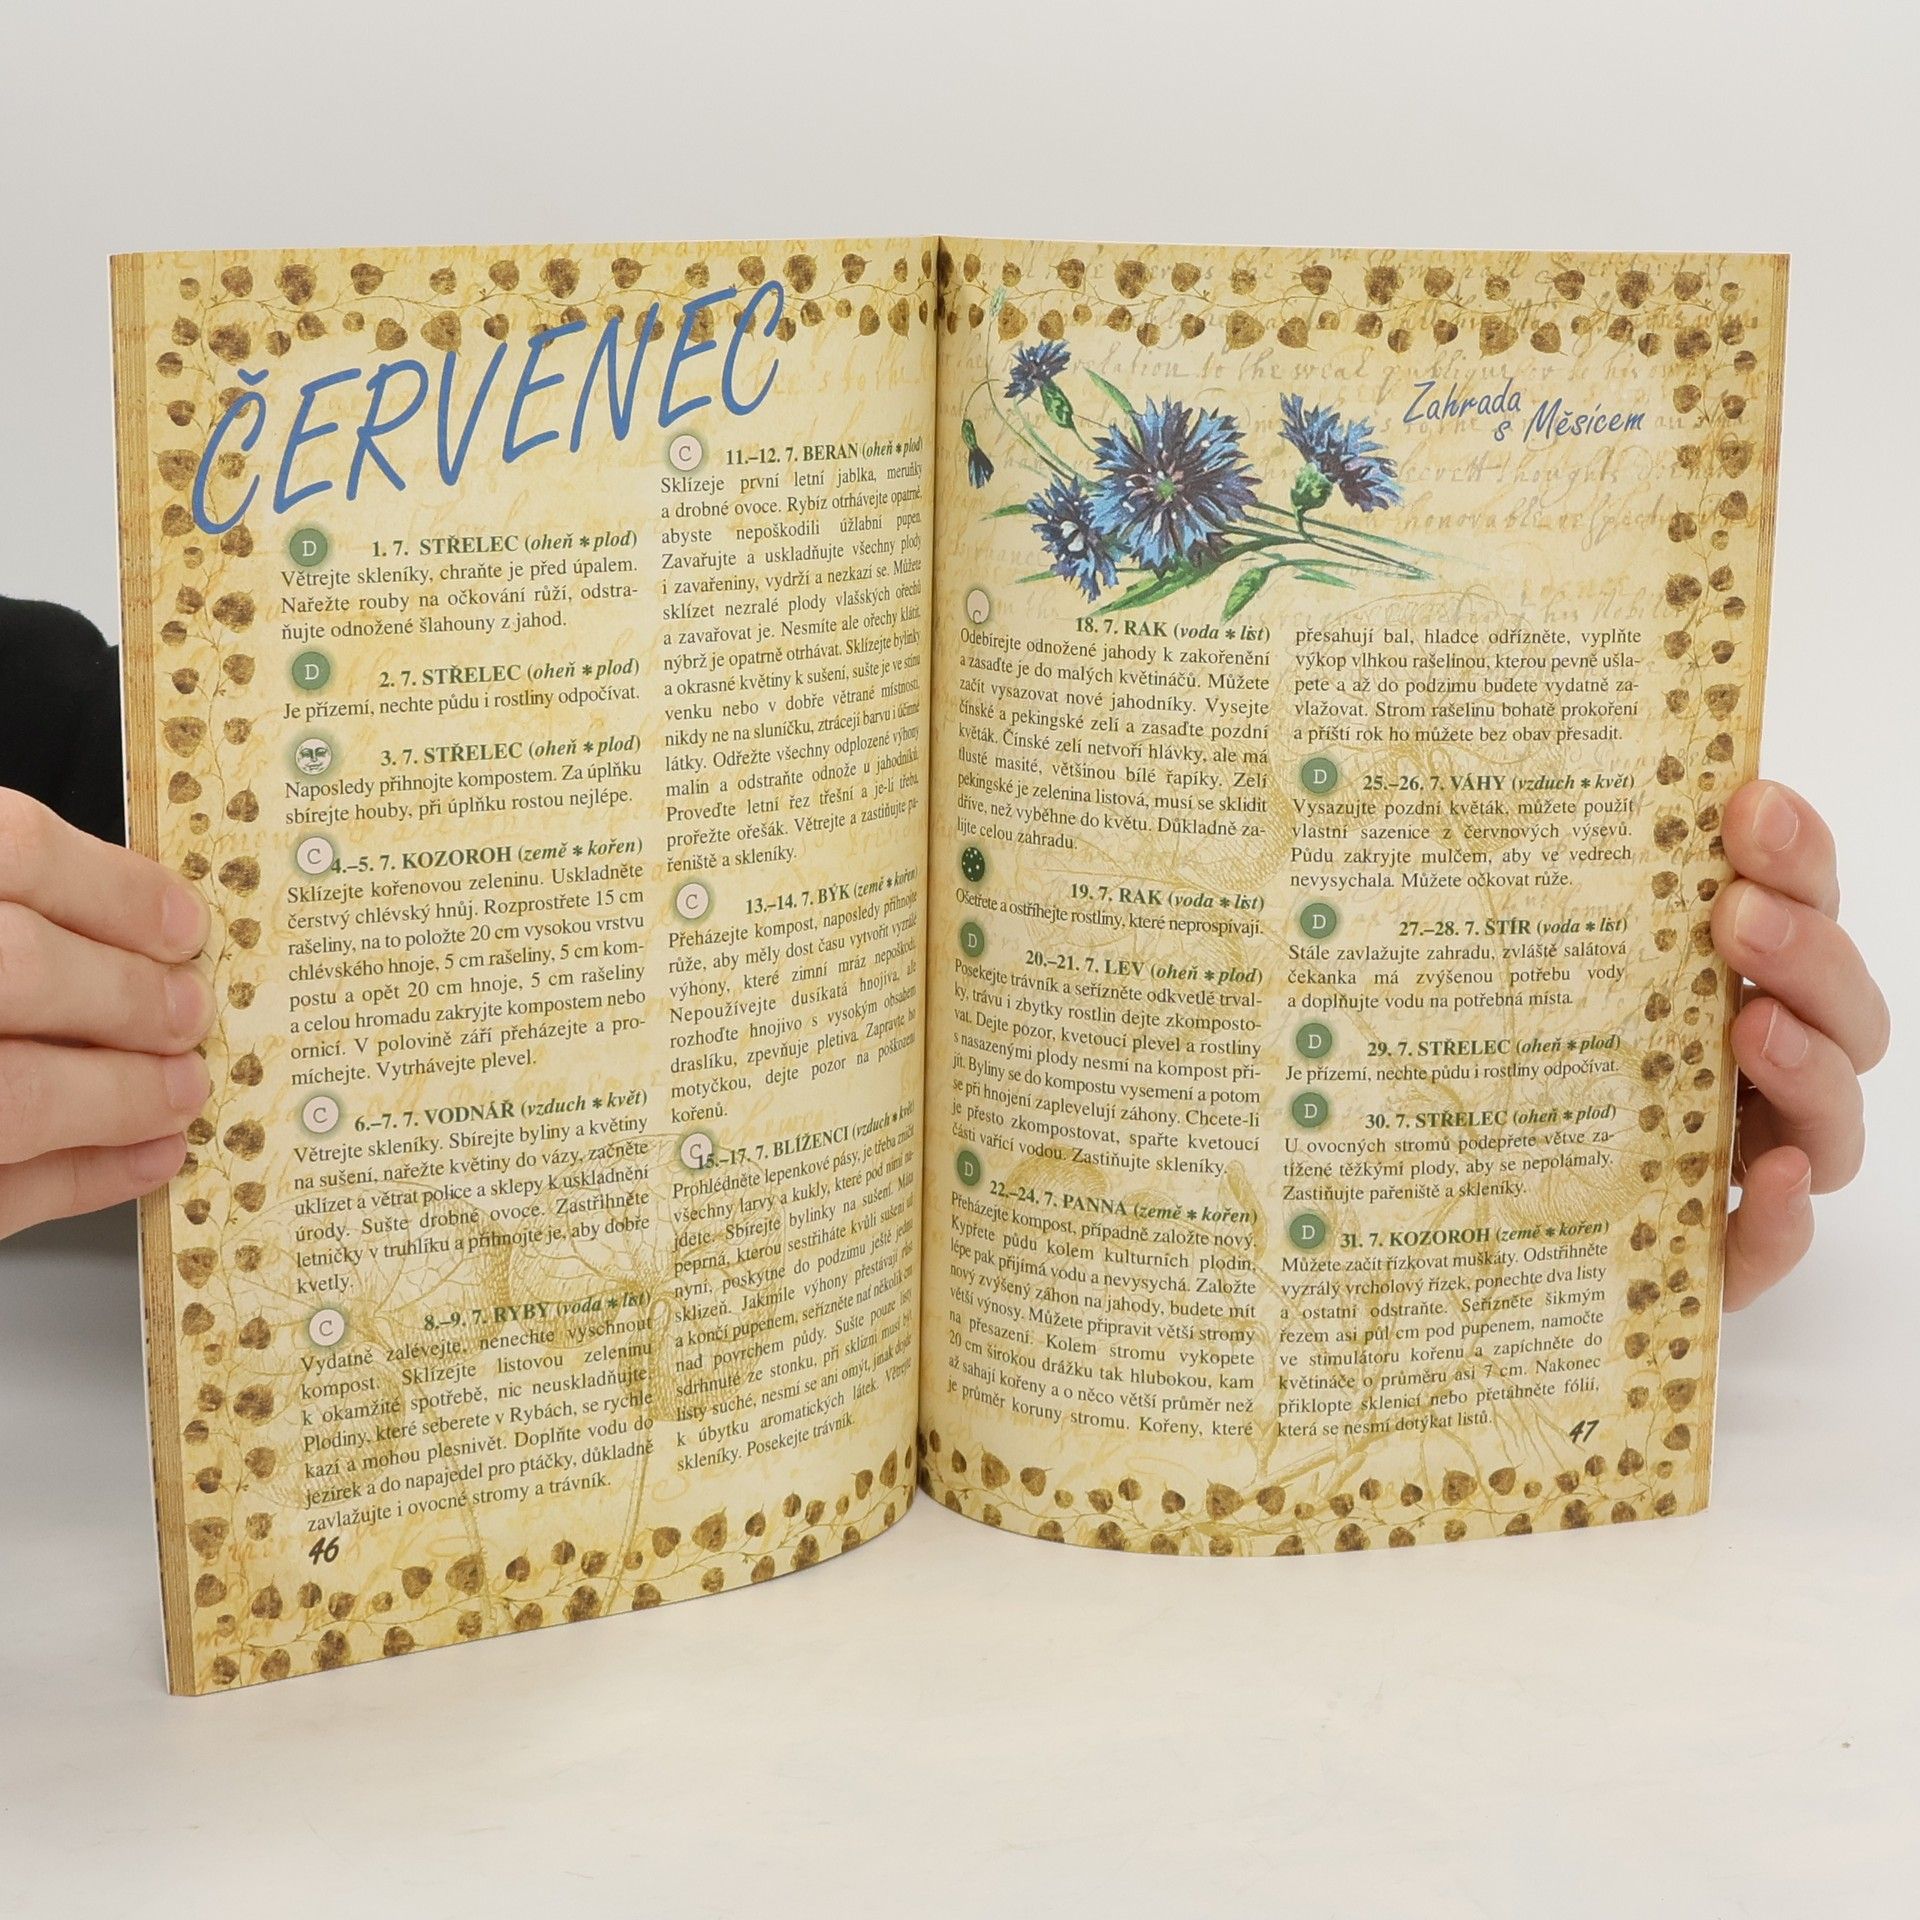 ČERVENEC
D
1. 7. STŘELEC (oheň * plod)
Větrejte skleníky, chraňte je před úpalem.
Nařežte rouby na očkování růží, odstra-
ňujte odnožené šlahouny z jahod.
D
2. 7. STŘELEC (oheň * plod)
Je přízemí, nechte půdu i rostliny odpočívat.
3. 7. STŘELEC (oheň * plod)
Naposledy přihnojte kompostem. Za úplňku
sbírejte houby, při úplňku rostou nejlépe.
C
4.–5. 7. KOZOROH (země * kořen)
Sklízejte kořenovou zeleninu. Uskladněte
čerstvý chlévský hnůj. Rozprostřete 15 cm
rašeliny, na to položte 20 cm vysokou vrstvu
chlévského hnoje, 5 cm rašeliny, 5 cm kom-
postu a opět 20 cm hnoje, 5 cm rašeliny
a celou hromadu zakryjte kompostem nebo
ornicí. V polovině září přeházejte a pro-
míchejte. Vytrhávejte plevel.
C
6.–7. 7. VODNÁŘ (vzduch * květ)
Větrejte skleníky. Sbírejte byliny a květiny
na sušení, nařežte květiny do vázy, začněte
uklízet a větrat police a sklepy k uskladnění
úrody. Sušte drobné ovoce. Zastřihněte
letničky v truhlíku a přihnojte je, aby dobře
kvetly.
C
8.–9. 7. RYBY (voda * list)
Vydatně zalévejte, nenechte vyschnout
kompost. Sklízejte listovou zeleninu
k okamžité spotřebě, nic neuskladňujte.
Plodiny, které seberete v Rybách, se rychle
kazí a mohou plesnivět. Doplňte vodu do
jezírek a do napajedel pro ptáčky, důkladně
zavlažujte i ovocné stromy a trávník.
46
C
11.–12. 7. BERAN (oheň * plod)
Sklízeje první letní jablka, meruňky
a drobné ovoce. Rybíz otrhávejte opatrně,
abyste nepoškodili úžlabní pupen.
Zavařujte a uskladňujte všechny plody
i zavařeniny, vydrží a nezkazí se. Můžete
sklízet nezralé plody vlašských ořechů
a zavařovat je. Nesmíte ale ořechy klátit,
nýbrž je opatrně otrhávat. Sklízejte bylinky
a okrasné květiny k sušení, sušte je ve stínu
venku nebo v dobře větrané místnosti,
nikdy ne na sluníčku, ztrácejí barvu i účinné
látky. Odřežte všechny odplozené výhony
malin a odstraňte odnože u jahodníků.
Proveďte letní řez třešní a je-li třeba,
prořežte ořešák. Větrejte a zastiňujte pa-
řeniště a skleníky.
C
13.–14. 7. BÝK (země * kořen)
Přeházejte kompost, naposledy přihnojte
růže, aby měly dost času vytvořit vyzrálé
výhony, které zimní mráz nepoškodí.
Nepoužívejte dusíkatá hnojiva, ale
rozhoďte hnojivo s vysokým obsahem
draslíku, zpevňuje pletiva. Zapravte ho
motyčkou, dejte pozor na poškození
kořenů.
C
15.–17. 7. BLÍŽENCI (vzduch * květ)
Prohlédněte lepenkové pásy, je třeba zničit
všechny larvy a kukly, které pod nimi na-
jdete. Sbírejte bylinky na sušení. Máta
peprná, kterou sestříháte kvůli sušení už
nyní, poskytne do podzimu ještě jednu
sklizeň. Jakmile výhony přestávají růst
a končí pupenem, seřízněte nať několik cm
nad povrchem půdy. Sušte pouze listy
sdrhnuté ze stonku, při sklizni musí být
listy suché, nesmí se ani omýt, jinak dojde
k úbytku aromatických látek. Větrejte
skleníky. Posekejte trávník.
Zahrada
s Měsícem
C
18. 7. RAK (voda * list)
Odebírejte odnožené jahody k zakořenění
a zasaďte je do malých květináčů. Můžete
začít vysazovat nové jahodníky. Vysejte
čínské a pekingské zelí a zasaďte pozdní
květák. Čínské zelí netvoří hlávky, ale má
tlusté masité, většinou bílé řapíky. Zelí
pekingské je zelenina listová, musí se sklidit
dříve, než vyběhne do květu. Důkladně za-
lijte celou zahradu.
19. 7. RAK (voda * list)
Ošetřete a ostříhejte rostliny, které neprospívají.
D
20.–21. 7. LEV (oheň * plod)
Posekejte trávník a seřízněte odkvetlé trval-
ky, trávu i zbytky rostlin dejte zkomposto-
vat. Dejte pozor, kvetoucí plevel a rostliny
s nasazenými plody nesmí na kompost při-
jít. Byliny se do kompostu vysemení a potom
se při hnojení zaplevelují záhony. Chcete-li
je přesto zkompostovat, spařte kvetoucí
části vařící vodou. Zastiňujte skleníky.
D
22.–24. 7. PANNA (země * kořen)
Přeházejte kompost, případně založte nový.
Kypřete půdu kolem kulturních plodin,
lépe pak přijímá vodu a nevysychá. Založte
nový zvýšený záhon na jahody, budete mít
větší výnosy. Můžete připravit větší stromy
na přesazení. Kolem stromu vykopete
20 cm širokou drážku tak hlubokou, kam
až sahají kořeny a o něco větší průměr než
je průměr koruny stromu. Kořeny, které
přesahují bal, hladce odřízněte, vyplňte
výkop vlhkou rašelinou, kterou pevně ušla-
pete a až do podzimu budete vydatně za-
vlažovat. Strom rašelinu bohatě prokoření
a příští rok ho můžete bez obav přesadit.
D
25.–26. 7. VÁHY (vzduch * květ)
Vysazujte pozdní květák, můžete použít
vlastní sazenice z červnových výsevů.
Půdu zakryjte mulčem, aby ve vedrech
nevysychala. Můžete očkovat růže.
D
27.–28. 7. ŠTÍR (voda * list)
Stále zavlažujte zahradu, zvláště salátová
čekanka má zvýšenou potřebu vody
a doplňujte vodu na potřebná místa.
D
29. 7. STŘELEC (oheň * plod)
Je přízemí, nechte půdu i rostliny odpočívat.
D
30. 7. STŘELEC (oheň * plod)
U ovocných stromů podepřete větve za-
tížené těžkými plody, aby se nepolámaly.
Zastiňujte pařeniště a skleníky.
D
31. 7. KOZOROH (země * kořen)
Můžete začít řízkovat muškáty. Odstřihněte
vyzrálý vrcholový řízek, ponechte dva listy
a ostatní odstraňte. Seřízněte šikmým
řezem asi půl cm pod pupenem, namočte
ve stimulátoru kořenu a zapíchněte do
květináče o průměru asi 7 cm. Nakonec
přiklopte sklenicí nebo přetáhněte fólií,
která se nesmí dotýkat listů.
47